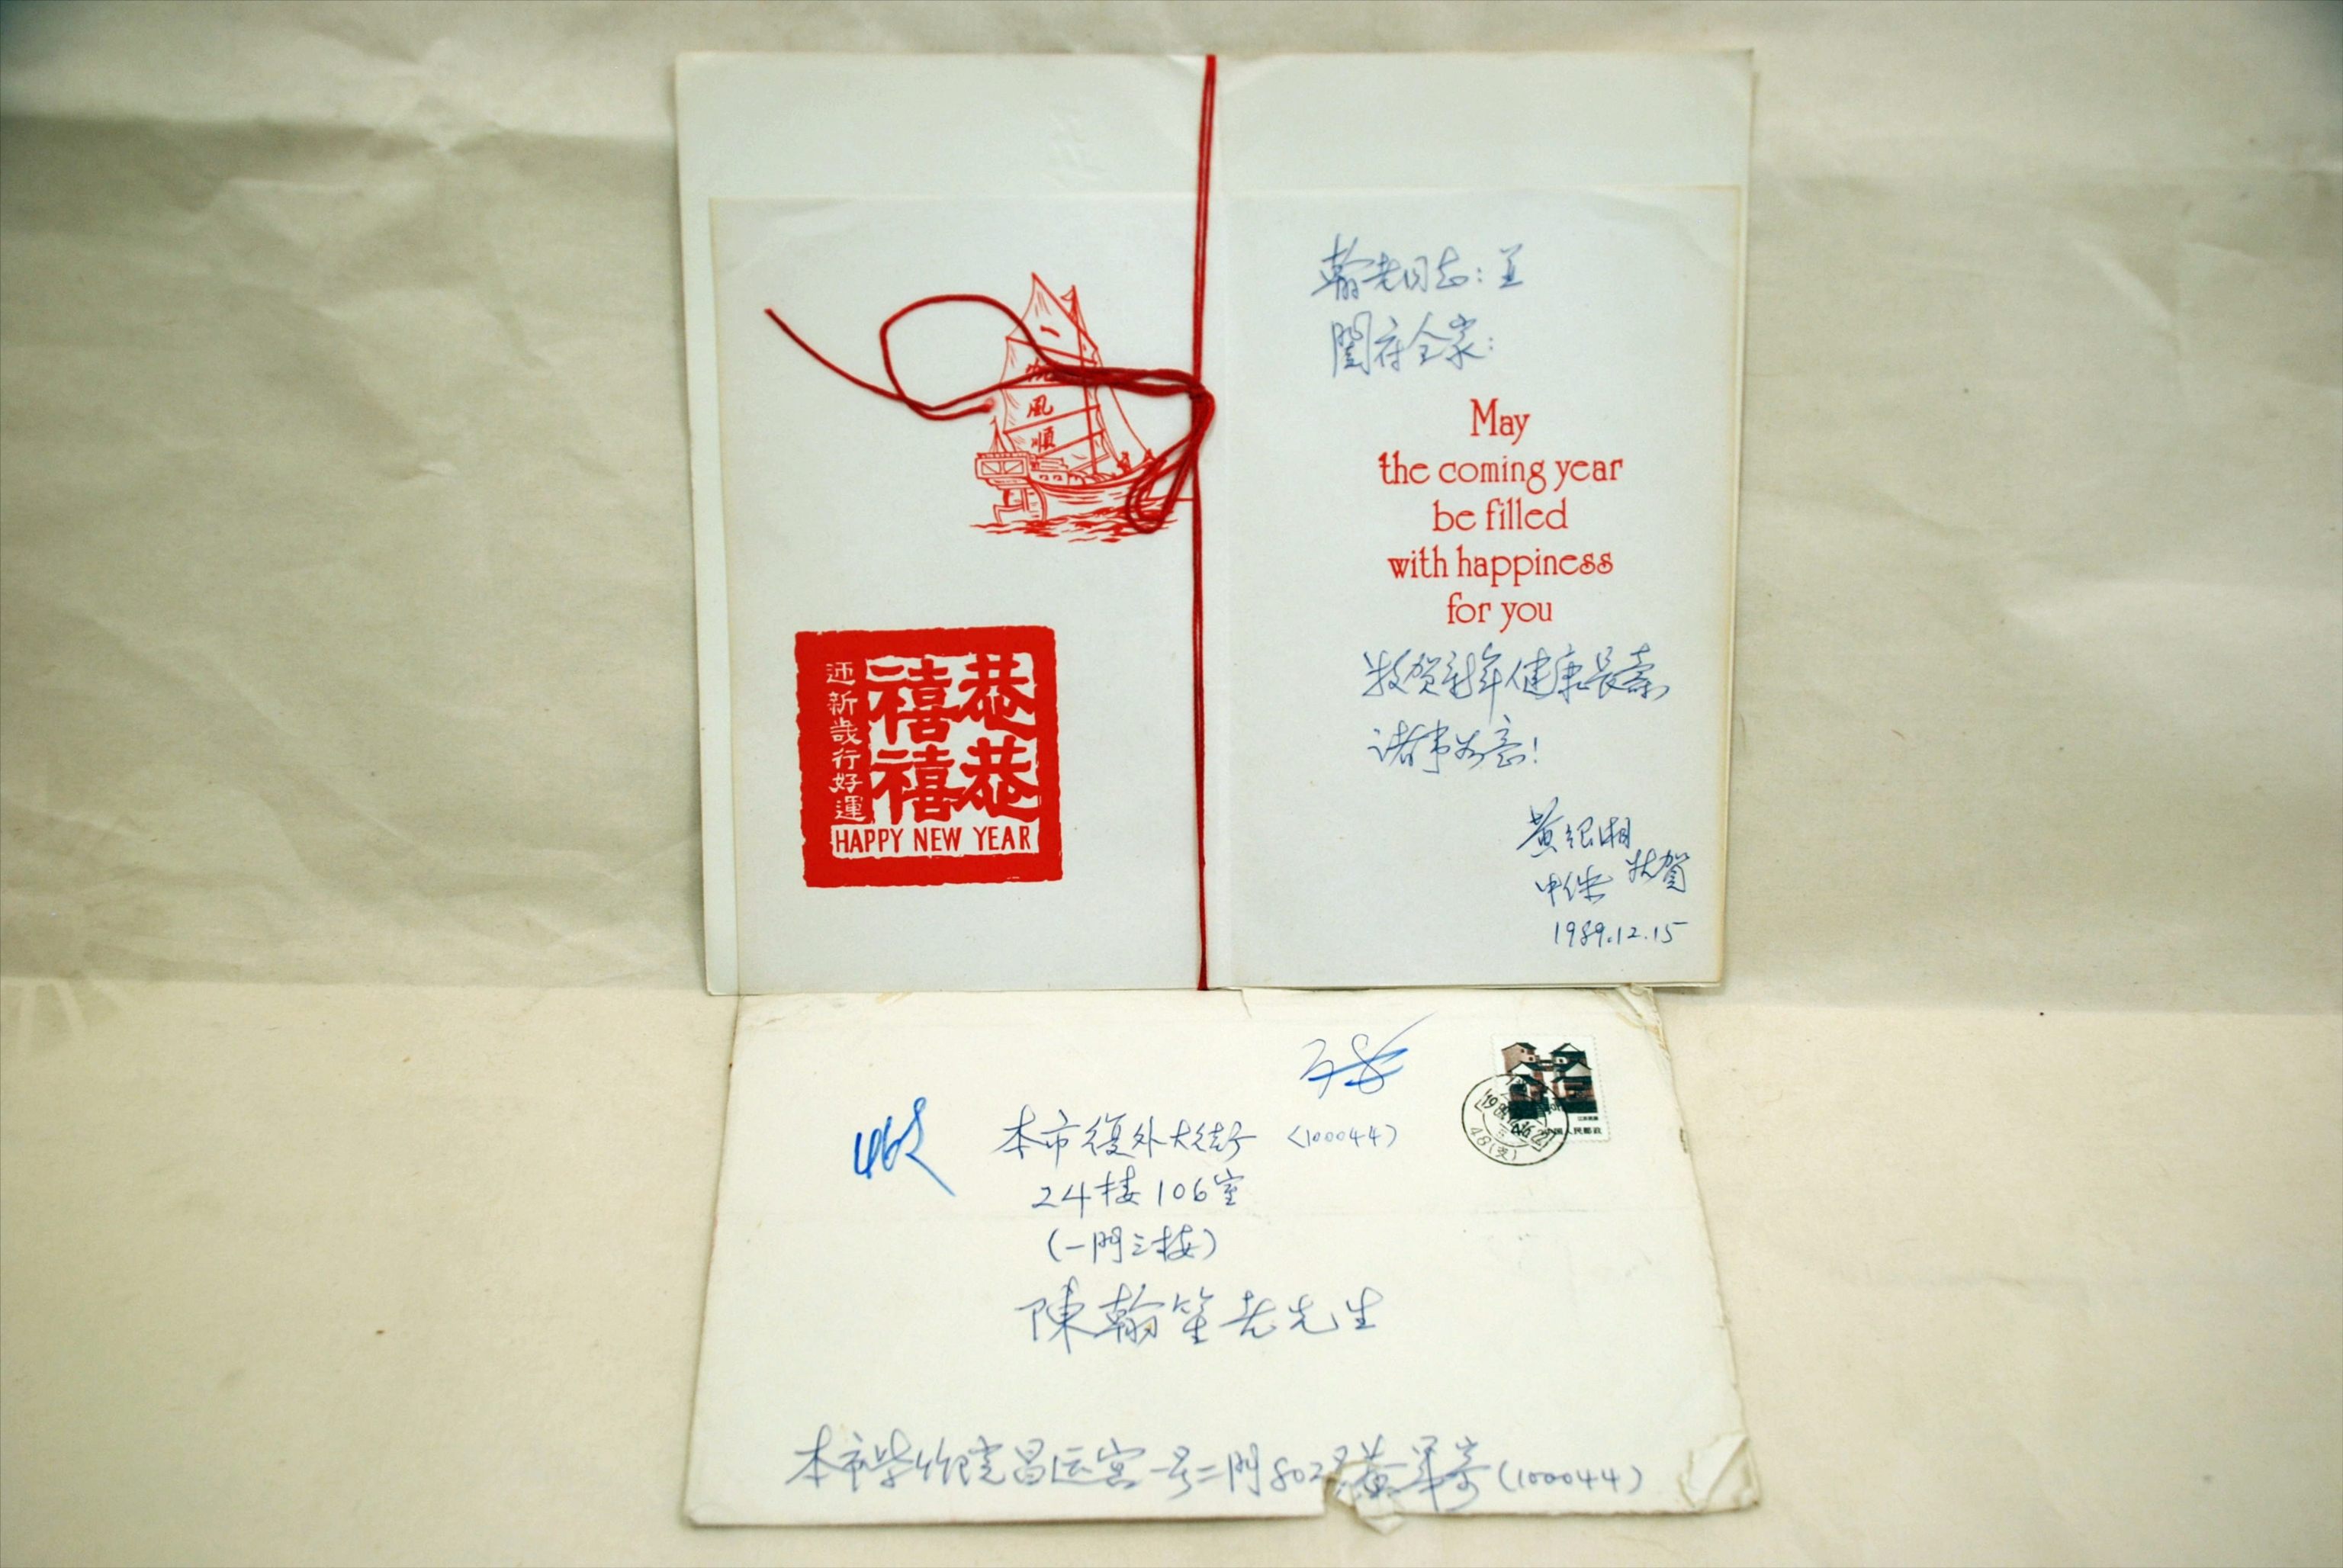 一
帆
風
順
恭恭
禧禧
迊新歲行好運
HAPPY NEW YEAR
翰老同志：並
閤府全家：
May
the coming year
be filled
with happiness
for you
敬贺新年健康長壽
诸事如意！
黄
敬賀
1989.12.15
本市復外大街 (100044)
24楼106室
(一門三楼)
陳翰笙老先生
本市紫竹院昌运宫一号二門802 黄 寄(100044)
中国人民邮政
48(支)